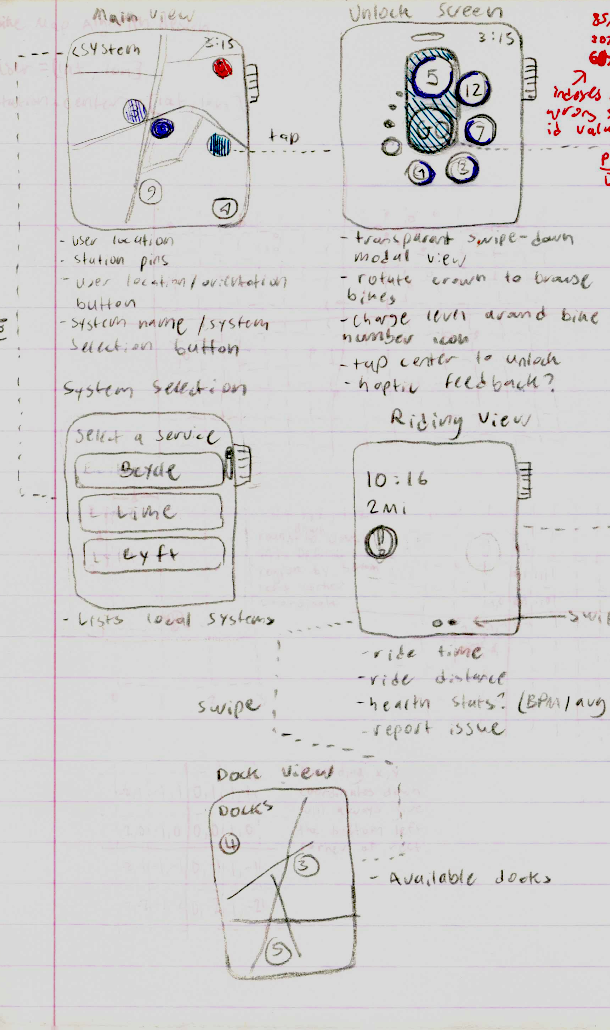 Main View
<System
3:15
9
4
tap
- user location
- station pins
- user location/orientation
button
- system name/system
selection button
Unlock Screen
3:15
5
12
7
- transparent swipe-down
modal view
- rotate crown to browse
bikes
- charge level around bike
number icon
- tap center to unlock
- haptic feedback?
85,
indexes
wrong
id valu
System Selection
Select a service
Bcycle
Lime
Lyft
- Lists local systems
Riding View
10:16
2 Mi
!
swip
- ride time
- ride distance
- health stats? (BPM/avg
- report issue
swipe
Dock View
Docks
4
3
5
- Available docks